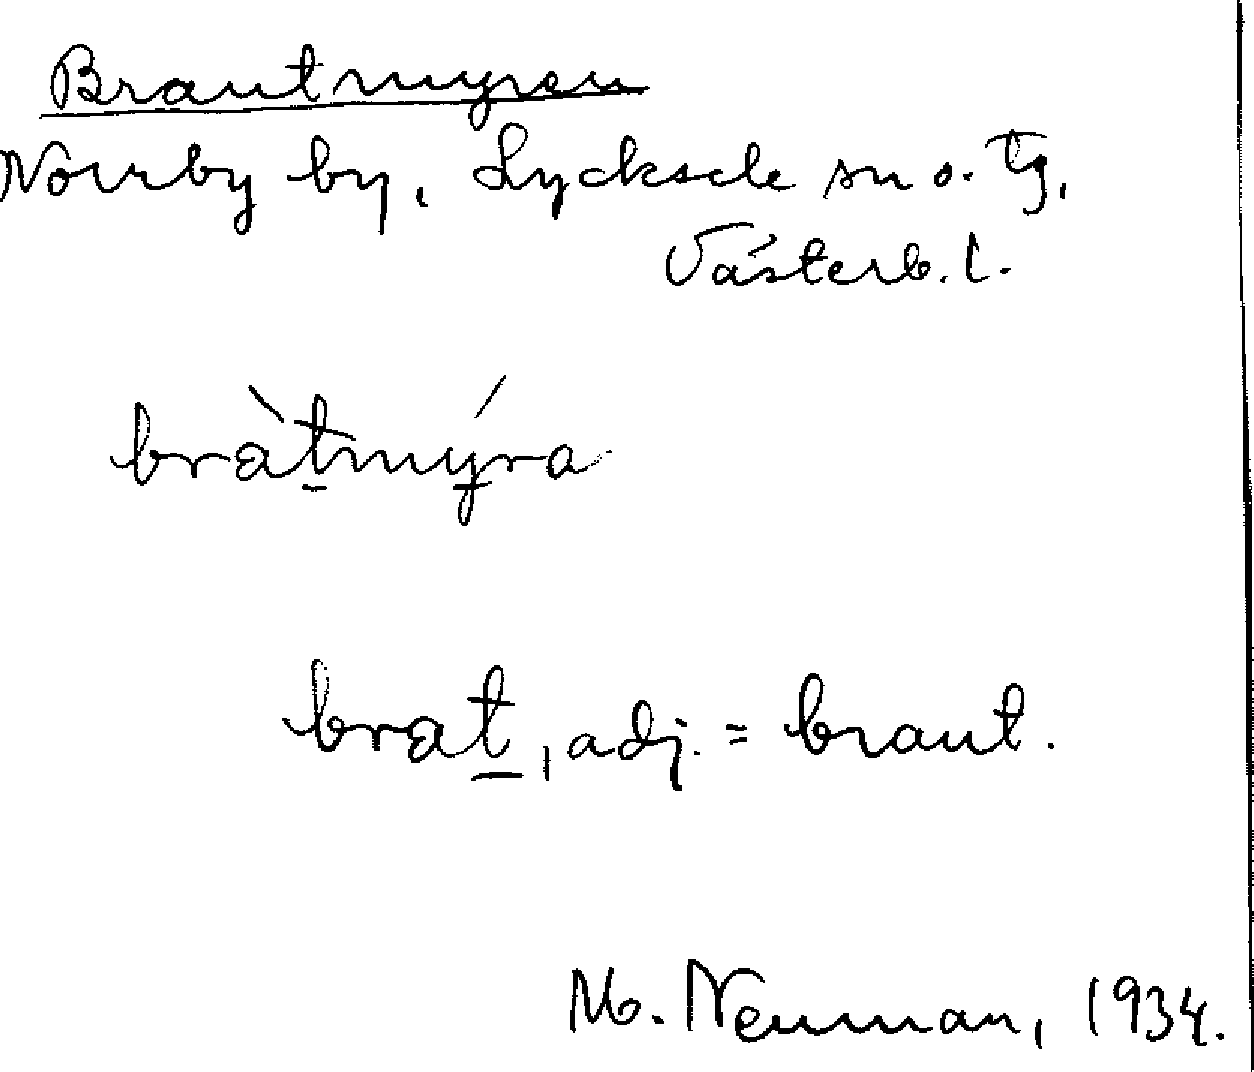 Brantmyren
Norrby by, Lycksele sn o. tg,
Västerb. l.
bràtmýra
brat, adj. = brant.
M. Neuman, 1934.